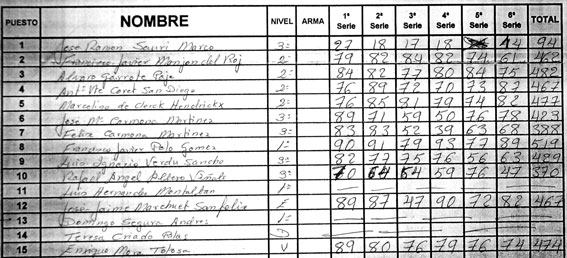 PUESTO NOMBRE NIVEL ARMA 1ª Serie 2ª Serie 3ª Serie 4ª Serie 5ª Serie 6ª Serie TOTAL
1 Jose Ramon Sauri Marco 3ª 27 18 17 18 14 94
2 Francisco Javier Monjon del Roj 2ª 79 82 84 82 74 61 462
3 Alvaro Garrote Roje 2ª 84 82 77 80 84 75 482
4 Antº Vte Coret San Diego 2ª 76 89 72 70 73 87 467
5 Marcelino de Clerck Hendrickx 2ª 76 85 81 79 74 82 477
6 Jose Mª Carmona Martinez 3ª 89 71 59 50 76 78 423
7 Felix Carmona Martinez 3ª 83 83 52 39 63 68 388
8 Francisco Javier Polo Gomez 1ª 90 91 79 93 77 89 519
9 Luis Ignacio Verdu Sancho 3ª 82 77 75 76 56 63 429
10 Rafael Angel Albero 3ª 70 64 54 59 76 47 370
11 Luis Hernandez 1ª
12 Jose Jaime Marchuet Sanfelix E 89 87 47 90 72 82 467
13 Domingo Segura Andres 1ª
14 Teresa Criado D
15 Enrique Mora Tolosa V 89 80 76 79 76 74 474